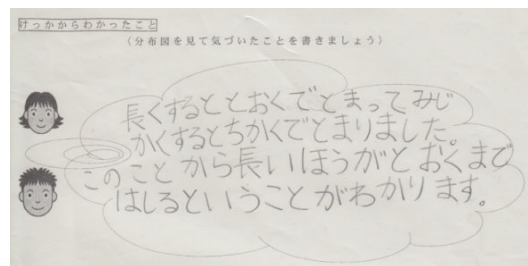 けっかからわかったこと
（分布図を見て気づいたことを書きましょう）
長くするととおくでとまってみじ
かくするとちかくでとまりました。
このことから長いほうがとおくまで
はしるということがわかります。